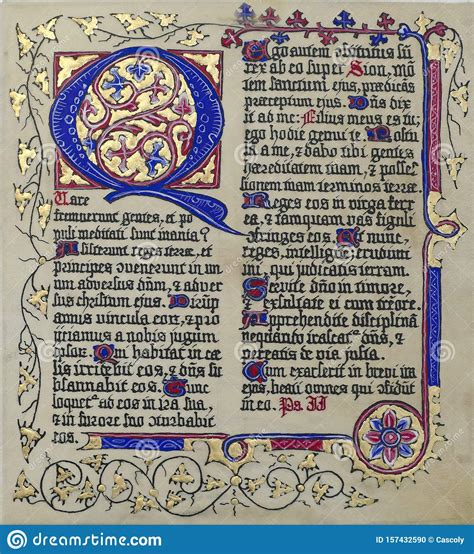 Quare
tremuerunt gentes, et po
puli meditati sunt inania?
Astiterunt reges terræ, et
principes cōvenerunt in u
num adversus dñm, & adver
sus christum ejus. Dirūp
amus vincula eor, & pro
jiciamus a nobis jugum
ipsor. Qui habitat in cæ
lis irridebit eos, & dñs su
bsannabit eos. Tunc
loquet ad eos in ira sua,
& in furore suo cōturbabit
eos.
Ego autem cōstitutus sū
rex ab eo super Sion, mōtē
sanctum ejus, prædicās
præceptum ejus. Dñs dix
it ad me: Filius meus es tu:
ego hodie genui te. Postu
la a me, & dabo tibi gentes
hæreditatem tuam, & posses
sionem tuam terminos terræ.
Reges eos in virga ferrea
& tamquam vas figuli
cōfringes eos. Et nunc,
reges, intelligite, erudimi
ni, qui judicatis terram.
Servite dño in timore,
& exsultate ei cum tremore.
Apprehendite disciplinā
nequando irascat dñs, &
pereatis de via justa.
Cum exarserit in brevi ira
ejus, beati omnes qui cōfidūt
in eo. Ps II
dreamstime
dreamstime.com
ID 157432590 © Cascoly